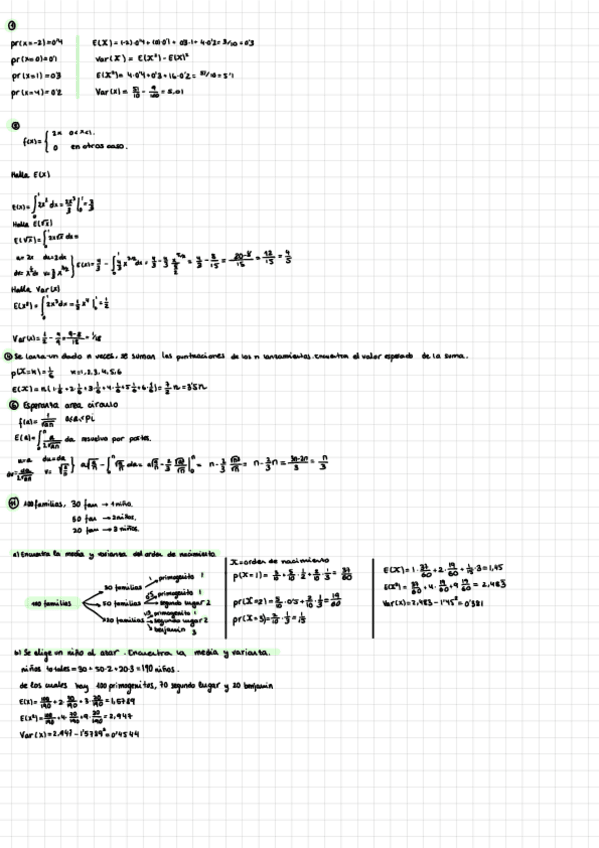 ①
pr(x=-2)=0'4
E(X)=(-2)·0'4+(0)·0'1+03·1+4·0'2=3/10=0'3
pr(x=0)=0'1
Var(X)= E(X²)-E(X)²
pr(x=1)=03
E(X²)= 4·0'4+0'3+16·0'2= 51/10=5'1
pr(x=4)=0'2
Var(X)= 51/10 - 9/100 = 5,01
f(x)= { 2x 0<x<1.
0 en otros caso.
Halla E(X)
E(x)=∫₀¹2x²dx=2x³/3|₀¹=2/3
Halla E(√x)
E(√x)=∫₀¹2x√x dx=
Halla Var(x)
E(X²)=∫₀¹2x³dx=½x⁴|₀¹=½
Var(x)=1/2-4/9=9-8/18=1/18
Se lanza un dado n veces, se suman las puntuaciones de los n lanzamientos. Encuentra el valor esperado de la suma.
p(X=x)=1/6 x=1,2,3,4,5,6
E(X)=n(1·1/6+2·1/6+3·1/6+4·1/6+5·1/6+6·1/6)=7/2 n=3'5n
⑥ Esperanza area circulo
da resuelvo por partes.
100 familias, 30 fam → 1 niño.
50 fam → 2 niños.
20 fam → 3 niños.
a) Encuentra la media y varianza del orden de nacimiento
100 familias
30 familias
primogenito 1
50 familias
primogenito 1
segundo lugar 2
20 familias
primogenito 1
segundo lugar 2
benjamin 3
X=orden de nacimiento
p(X=1)= 3/10+5/10·1/2+2/10·1/3= 37/60
pr(X=2)=5/10·0'5+2/10·1/3=19/60
pr(X=3)=2/10·1/3=1/15
E(X)=1·37/60+2·19/60+1/15·3=1,45
E(X²)=37/60+4·19/60+9·1/15=2,483
Var(X)=2,483-1'45²=0'381
b) Se elige un niño al azar. Encuentra la media y varianza.
niños totales=30+50·2+20·3=190 niños.
de los cuales hay 100 primogenitos, 70 segundo lugar y 20 benjamin
E(X)=100/190+2·70/190+3·20/190=1,5789
E(X²)=100/190+4·70/190+9·20/190=2,947
Var(X)=2.947-1'5789²=0'4544